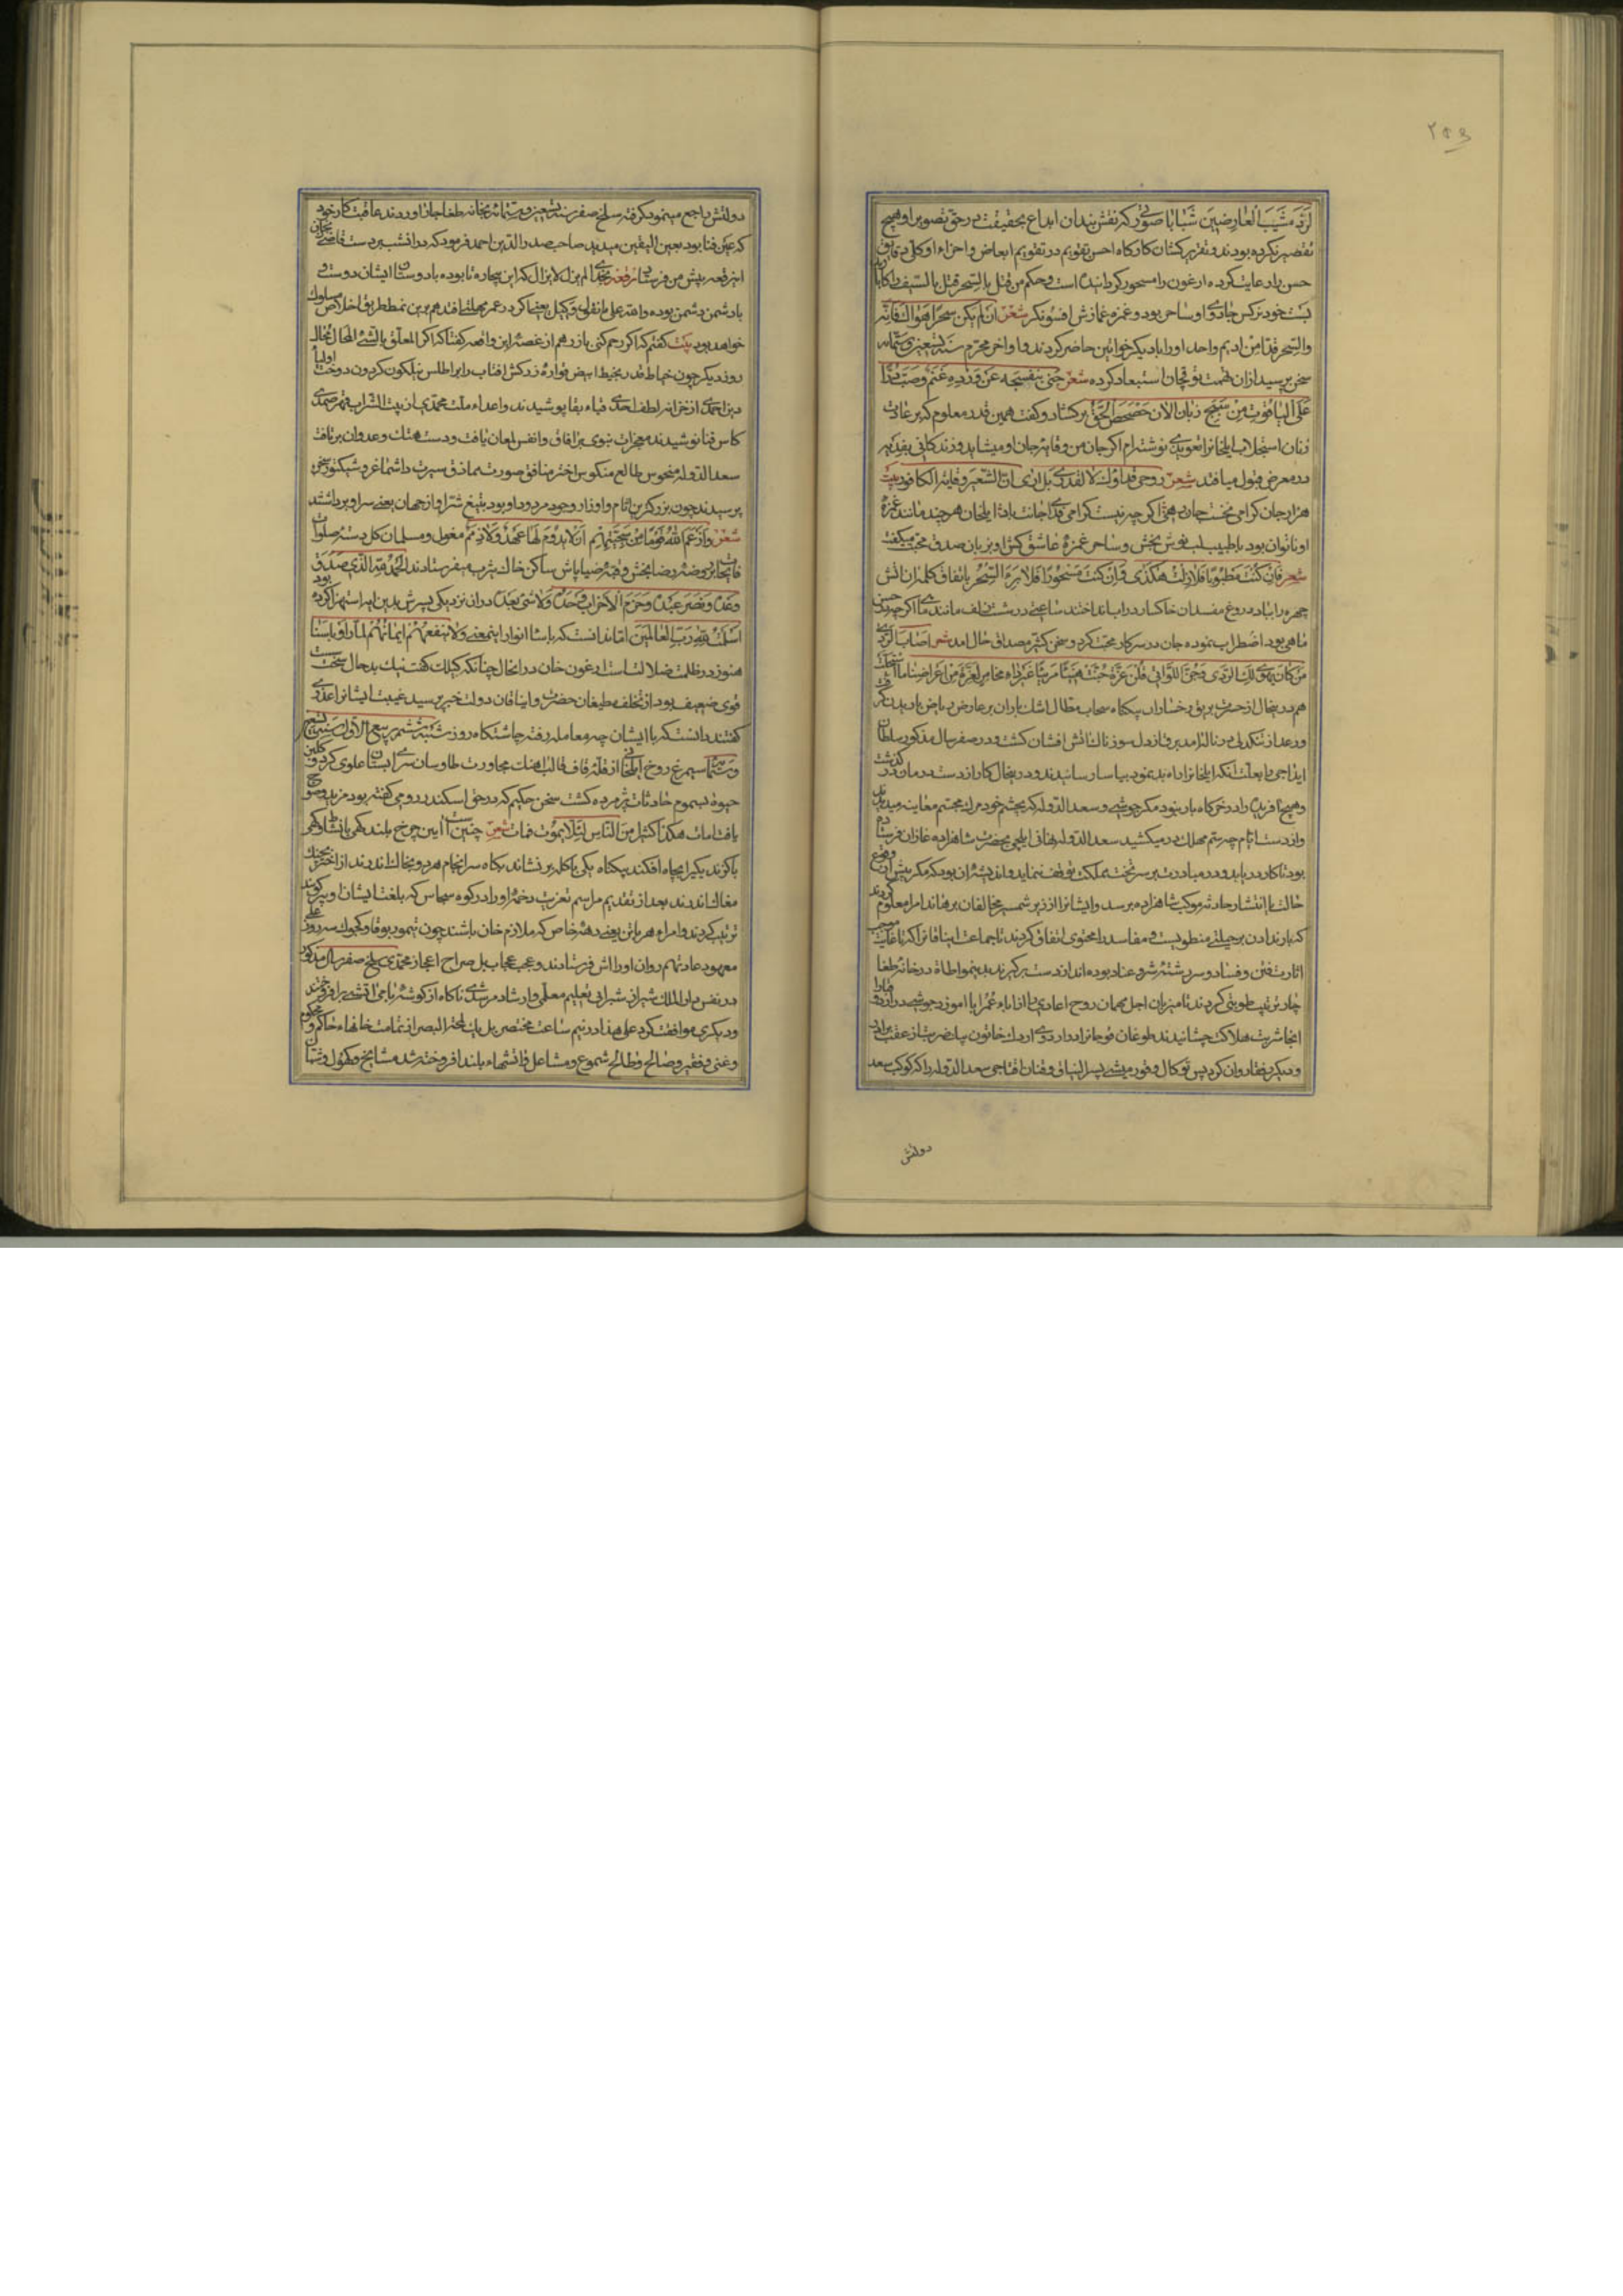 لرد مشیب العارضین شبابا صورتی که نقش بندان ابداع بحقیقت در حق تصویر او هیچ
تقصیر نکرده بودند و تقریر کشان کارکاه احسن تقویم در تقویم ابعاض و اجزاء او کلی دقایق
حسن را رعایت کرده ارغون را مسحور کردانیده است و حکم من قتل بالسحر قتل بالسیف
خود نرکس جادوی او ساحر بود و غمزه غمازش افسونکر شعر ان لم یکن سحرا هواک فانه
والسحر قدا من ادیم واحد او را با دیکر خواتین حاضر کردند و اواخر محرم سنه تسعین و ستمایه
سخن پرسید از ان تهمت توقجان استبعاد کرده شعر جنی بنفسجه عن ورده
علی الیاقوت من سبج زبان الآن حصحص الحق برکشاد و کفت همین قدر معلوم که بر عادت
زنان استجلاب ایلخان را تعویذی نوشته‌ام اکر جان من وقایه جان او میشاید و زندکانی بفدیه
در معرض قبول میافتد شعر روحی فداؤک لا افدی بل اری ان الشعیر وقایه الکافور بیت
هزار جان کرامی نخست جان رهی اکر چه نیست کرامی فدای جانت باد ایلخان هر چند مانند غمزه
او ناتوان بود با طبیب لب نوش بخش و ساحر غمزه عاشق کش او بزبان صدق محبت میکفت
شعر فان کنت مطبوبا فلا زلت هکذی و ان کنت مسحورا فلا برء السحر باتفاق کلمه ان آتش
چهره را بباد دروغ مفسدان خاکسار در آب انداختند ساعتی در شست زلف مانند
ماهی بود اضطراب نموده جان در سر کار محبت کرد و سخن کثیر مصداق حال آمد شعر اصاب الردی
من کان یهوی لک الردی و جن اللواتی قلن عزه جنت هنیئا مریئا غیر داء مخامر لعزه من اعراضنا ما استحلت
هم در بخال از حسرت
و رعد از تنکدلی در ناله آمد برق از دل سوزناک آتش افشان کشت و در صفر سال مذکور سلطان
ایداجی را بعلت آنکه ایلخان را راه بد نمود بیاسا رسانیدند و در ین حال کار از دست درمان در کذشت
و هیچ آفریده را در خرکاه بار نبود مکر جوشی و سعد الدوله که بچشم خود مرک مجسم معاینه میدیدند
و از دست ایام جرعه سم مهلک در میکشید سعد الدوله نهانی ایلچی بحضرت شاهزاده غازان فرستاد
بود تا کار دریابد و در مبادرت بسر تخت مملکت توقف ننماید و اندیشه آن بود که مکر پیش از وقوع
حالت یا انتشار حادثه موکب شاهزاده برسد و ایشانرا از زیر شمشیر مخالفان برهاند امرا معلوم کردند
که بار ندادن بر حیلتی منطویست و مفاسد را محتوی اتفاق کردند تا جماعت ایناقان را که
اثارت فتن و فساد و سررشته شر و عناد بوده اند از دست برکیرند بدین مواطاة در خانه طغاجار
جار ترتیب طویی کردند تا میزبان اجل مهمان روح اعادی را
آنجا شربت هلاکت چشانیدند طوغان قوجان را در اردوی اروک خاتون بیک ضربت از عقب برادر
و دیکر رفقا روان کرد پس توکال و قور میشی پسر الیناق و قنان اقتاجی سعد الدوله را که کوکب سعد
دولتش
دولتش راجع مینمود بکرفته سلخ صفر سنه تسعین و ستمایه بخانه طغاجار آوردند عاقبت کار خود
که عین فنا بود بعین الیقین میدید صاحب صدر الدین احمد فرمود که در ان شب بر دست
این رقعه پیش من فرستاد رقعه لم یزل و لا یزال که این بیچاره تا بوده با دوستان ایشان دوست و
با دشمن دشمن بوده و الله علی ما نقول وکیل بعد ما کر در عمر مهلتی افتد هم برین نمط طریق اخلاص مسلوک
خواهد بود بیت کفتم که اکر رحم کنی بازرهم از غصه این واقعه کفتا که اکر المعلق بالشی المحال محال
روز دیکر چون خیاط قدر بخیط ابیض قواره زرکش آفتاب را بر اطلس نیلکون کردون دوخت اولیاء
دین احمدی از خزانه لطف احدی قباء بقا پوشیدند و اعداء ملت محمدی از بیت الشراب قهر صمدی
کاس فنا نوشیدند معجزات نبوی بر آفاق و انفس لمعان یافت و دست هتک و عدوان برتافت
سعد الدوله منحوس طالع منکوس اختر منافق صورت مماذق سیرت را
پرسیدند چون بزرکترین اثام و اوزار وجود مردود او بود بتیغ شر او از جهان بغی سر او برداشتند
شعر و ارغم الله قوما من سجیتهم ان لا یدوم لها عهد و لا ذمم مغول و مسلمان کل دسته صلوات
فایحات بروضه رضا بخش و قبه ضیا پاش ساکن خاک یثرب میفرستادند الحمد لله الذی صدق
وعده و نصر عبده و هزم الاحزاب وحده و لا شی بعده
اسلمت لله رب العالمین اما ندانست که فلم یک ینفعهم ایمانهم لما راو باسنا
هنوز در ظلمت ضلالتست ارغون خان در انحال چنانکه کیلک کفت نیک بد حال سخت
قوی ضعیف بود از تخلف طبقان حضرت و ایناقان دولت خبر پرسید غیبت ایشان را عذری
کفتند دانست که با ایشان چه معامله رفته چاشتکاه روز شنبه ششم ربیع الاول سنه تسعین
و ستمایه سیمرغ روح ایلخانی از قله قاف قالب آهنک مجاورت طاوسان سرا بستان علوی کرد و کلبن
حیوة بسموم حادثات پژمرده کشت سخن حکیم که در حق اسکندر رومی کفته بود مزید وضوح
یافت امات هکذا اکثر من الناس لئلا یموت فمات شعر چنین است آیین چرخ بلند کهی با نشاط و کهی
با کزند یکی را بچاه افکند بیکناه یکی با کله بر نشاند بکاه سرانجام هر دو بخاک اندرند از اختر بچنک
مغاک اندرند بعد از تقدیم مراسم تعزیت دخمه او را در کوه سجاس که بلغت ایشان
ترتیب کردند و امراء هر یاتن یعنی دهه خاص که ملازم خان باشند چون تیمور بوقا و کجوک سه روز علی
معهود عادتهم روان او را آش فرستادند و عجب عجاب بل صراح اعجاز محمدی سلخ صفر سال مذکور
در نفس دار الملک شیراز شیرانی تعلیم معلمی و ارشاد مرشدی ناکاه از کوشه بامی آتشی برافروختند
و دیکری موافقت کرد علی هذا در نیم ساعت مختصر بل یک لمح البصر از تمامت خانهاء حاکم و محکوم
و غنی و فقیر و صالح و طالح شموع و مشاعل و آتشهاء بلند افروخته شد مشایخ و کهول و شبان